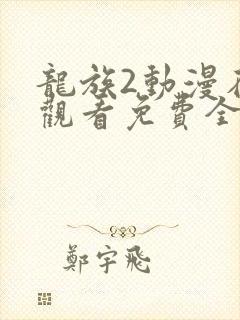 龍族2動漫
觀看免費全
鄭宇飛